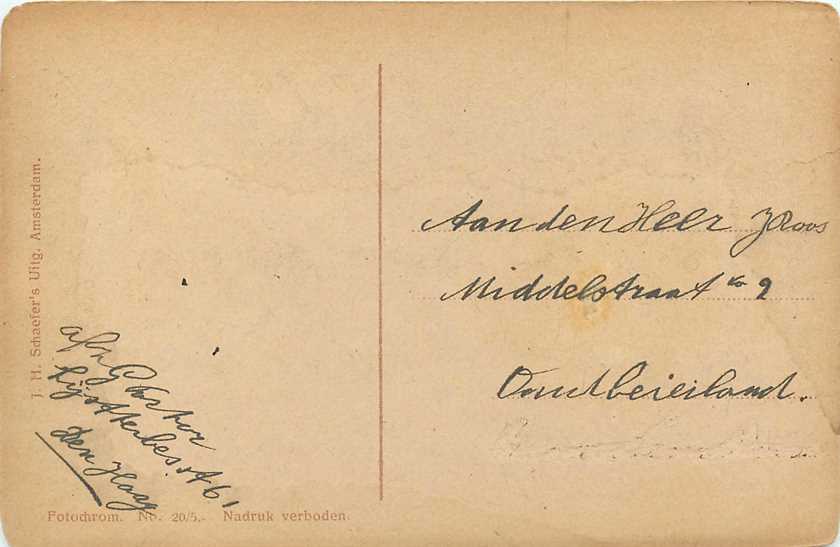 J. H. Schaefer's Uitg. Amsterdam.
Aan den Heer J Roos
Middelstraat No 9
Oudbeierland.
afz G
Lijsterbes. A 61
Den Haag
Fotochrom. No. 20/5.- Nadruk verboden.